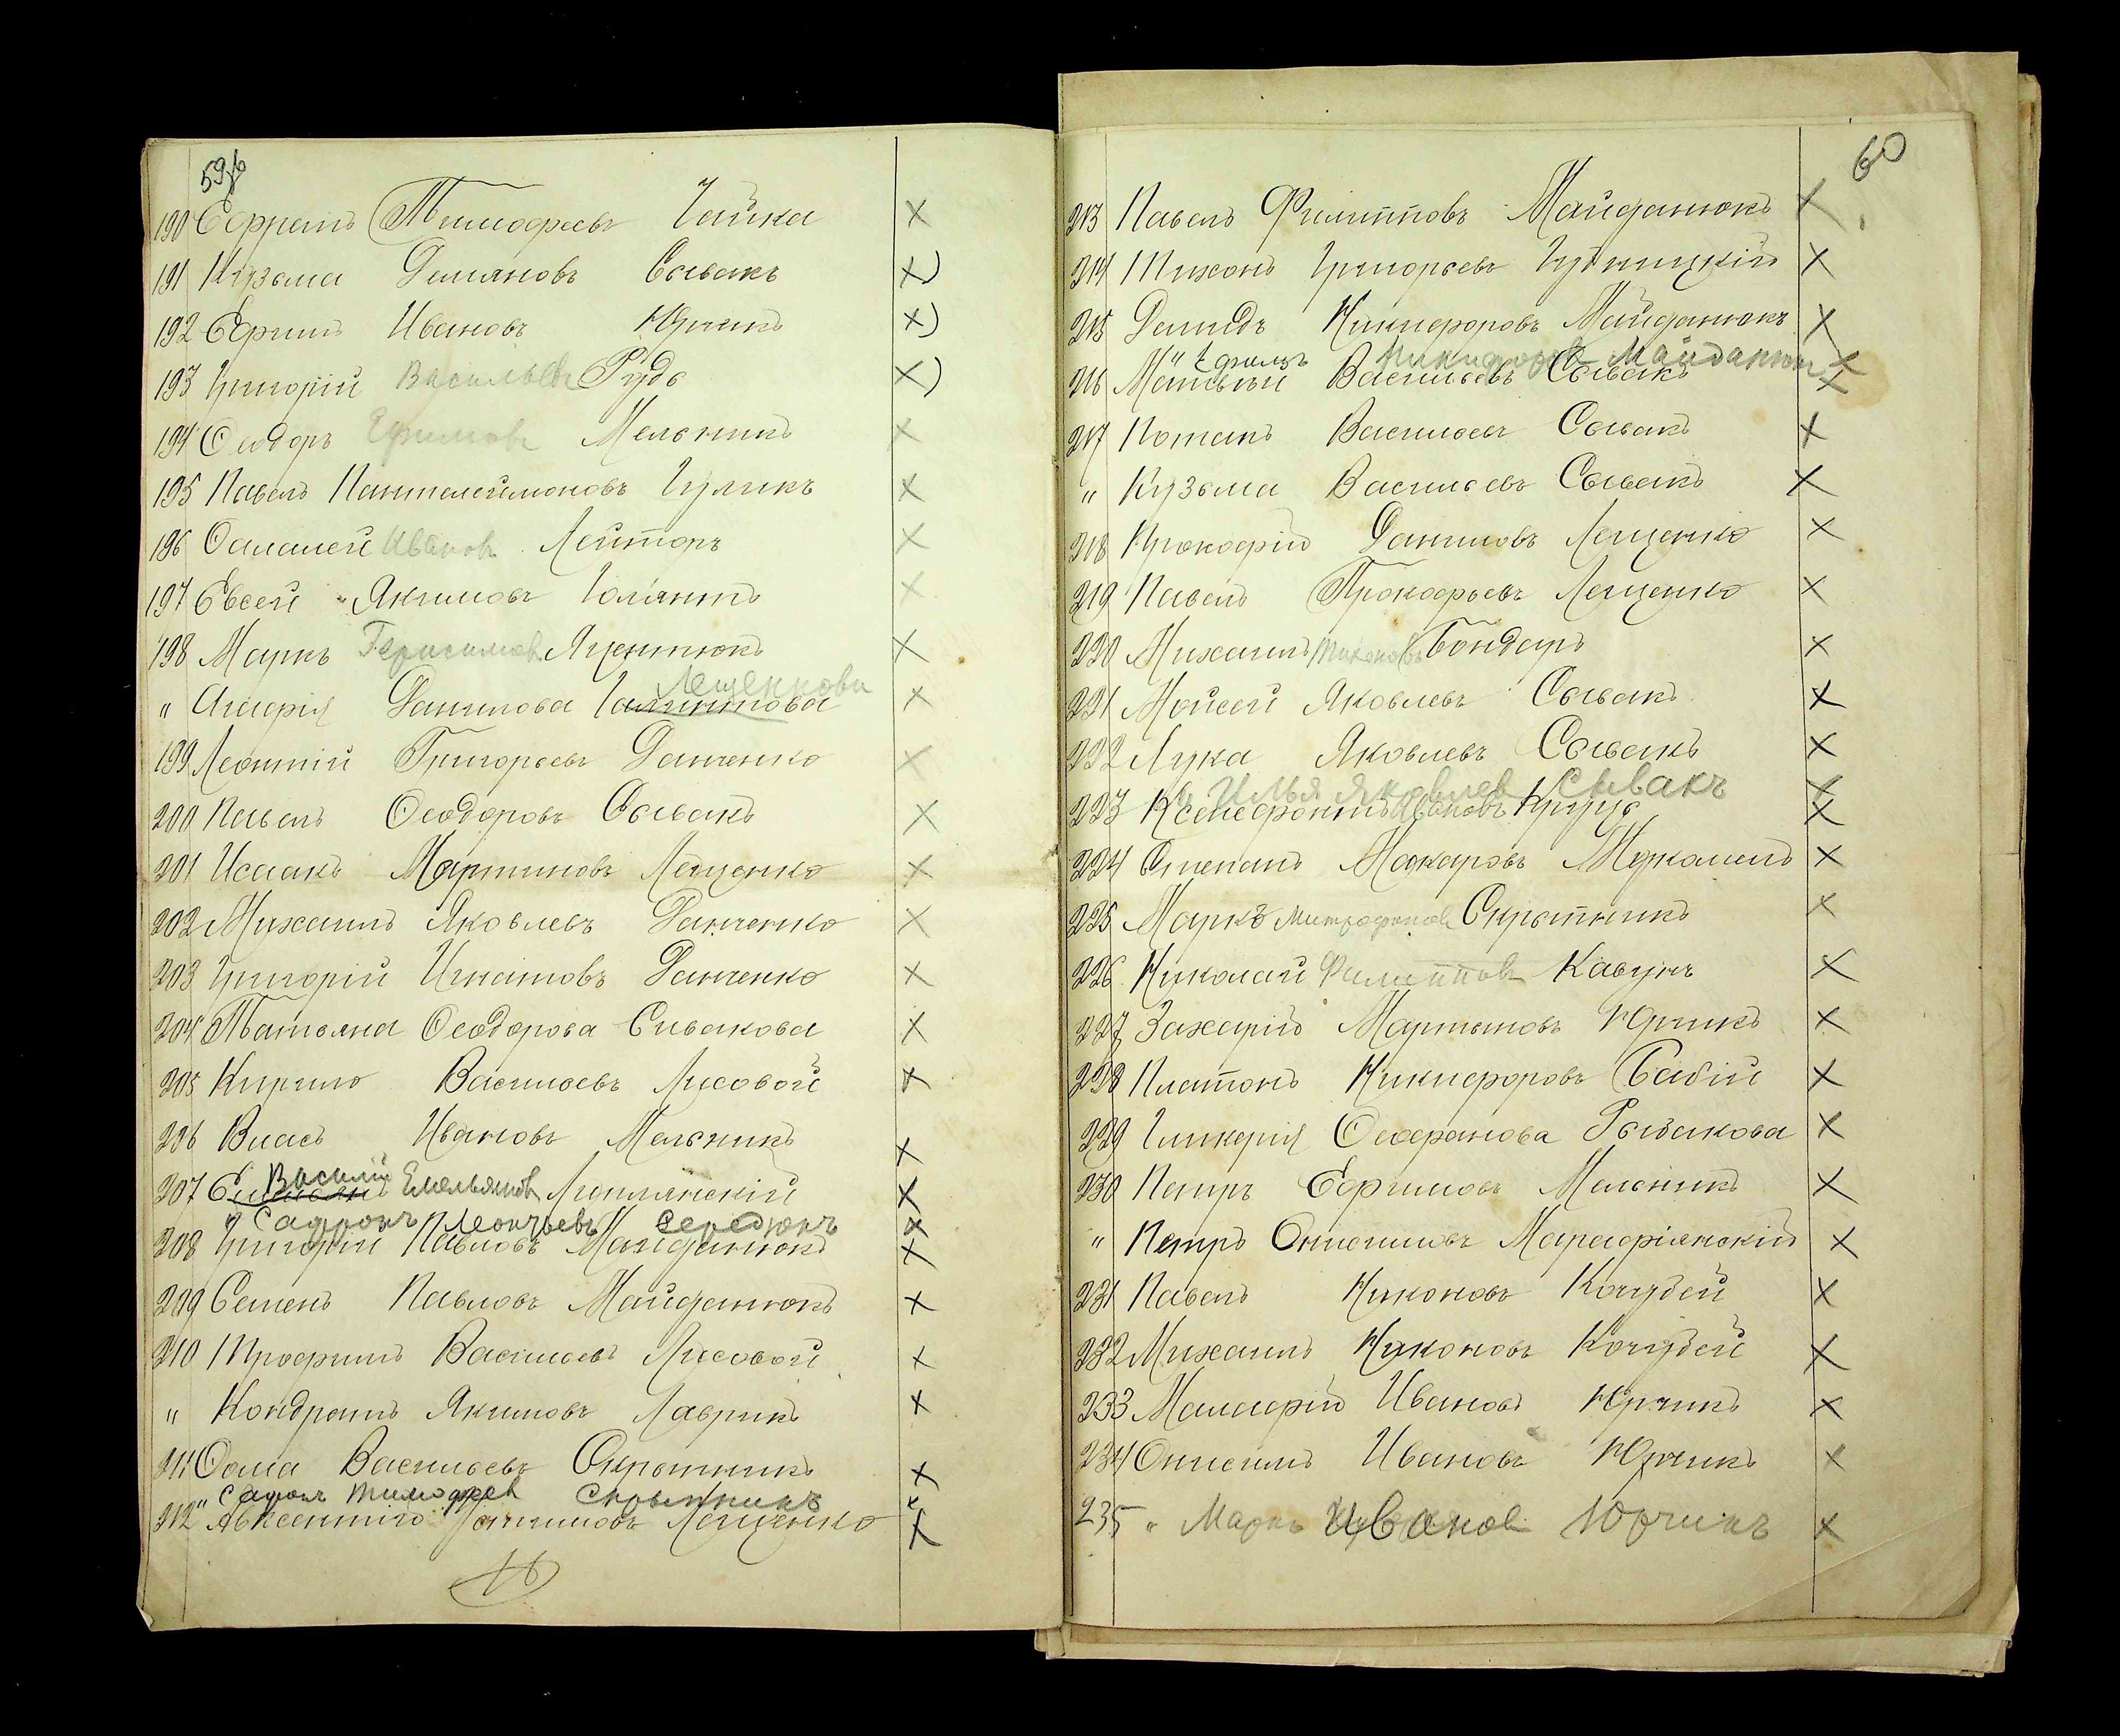 59
190 Ефремъ Тимофеевъ Чайка ×
191 Кузьма Демяновъ Сывакъ ×)
192 Ефимъ Ивановъ Юрчикъ ×)
193 Григорій Васильевъ Рудь ×)
194 Ѳеодоръ Ефимовъ Мельникъ ×
195 Павелъ Пантелеймоновъ Цуликъ ×
196 Ѳалалей Иванов Лейторъ ×
197 Евсей Якимовъ ×
198 Маркъ Герасимов Яцентюкъ ×
" Агафія Данилова Лещенкова ×
199 Леонтій Григорьевъ Данченко ×
200 Павелъ Ѳеодоровъ Сывакъ ×
201 Исаакъ Мартиновъ Лещенко ×
202 Михаилъ Яковлевъ Данченко ×
203 Григорій Игнатовъ Данченко ×
204 Татьяна Ѳеодорова Сивакова ×
205 Кирило Васильевъ Лисовой ×
206 Власъ Ивановъ Мельникъ ×
207 Василій Емельянов Липлянскій ×
" Сафронъ Леонтьевъ Середюкъ ×
208 Григорій Павловъ Майданюкъ ×
209 Семенъ Павловъ Майданюкъ ×
210 Трофимъ Васильевъ Лисовой ×
" Кондратъ Якимовъ Лаврикъ ×
211 Ѳома Васильевъ Скрытникъ ×
" Тимофеев ×
212 Авксентій Лещенко ×
60
213 Павелъ Филипповъ Майданюкъ ×
214 Тихонъ Григорьевъ ×
215 Демидъ Никифоровъ Майданюкъ ×
" Ефимъ Никифоров Майданюк ×
216 Матвѣй Васильевъ Сывакъ ×
217 Потапъ Васильевъ Сывакъ ×
" Кузьма Васильевъ Сывакъ ×
218 Прокофій Даниловъ Лещенко ×
219 Павелъ Прокофьевъ Лещенко ×
220 Михаилъ Бондаръ ×
221 Мойсей Яковлевъ Сывакъ ×
222 Лука Яковлевъ Сывакъ ×
" Илья Яковлев Сывакъ ×
223 Ксенефонтъ Ивановъ Круць ×
224 Степанъ Макаровъ Мукомелъ ×
225 Маркъ Митрофанов Скрытникъ ×
226 Николай Филиппов Кавунъ ×
227 Захарій Мартыновъ Юрчикъ ×
228 Платонъ Никифоровъ Бабій ×
229 Гликерія Ѳеофанова Рыбакова ×
230 Петръ Ефимовъ Мельникъ ×
" Петръ Онисимовъ Марафіянскій ×
231 Павелъ Никоновъ Кочубей ×
232 Михаилъ Никоновъ Кочубей ×
233 Малафій Ивановъ Юрчикъ ×
234 Онисимъ Ивановъ Юрчикъ ×
235 " Маркъ Иванов Юрчикъ ×